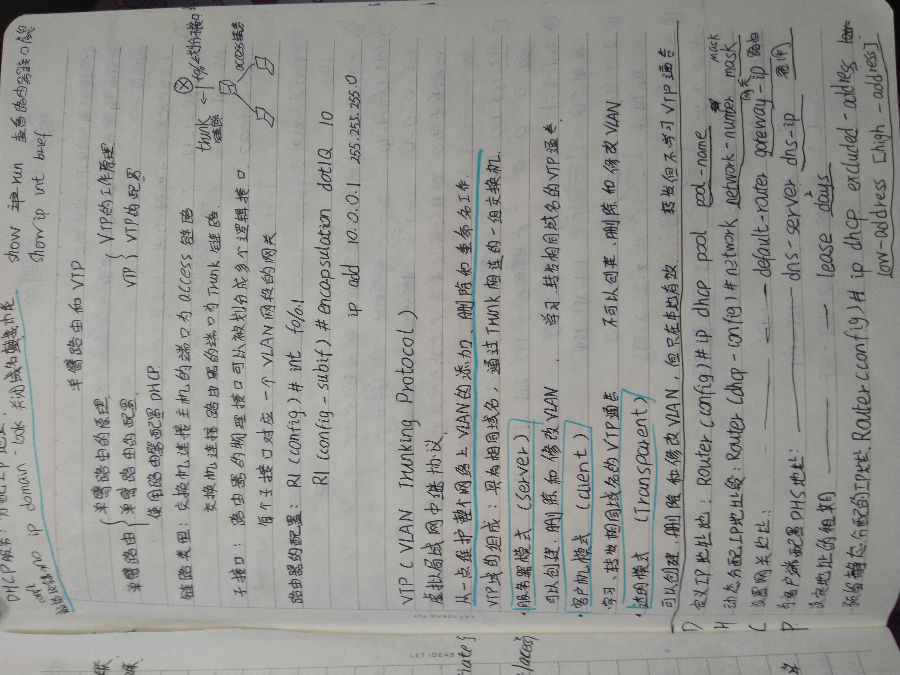 DHCP服务: 分配IP地址.
no ip domain-look 关闭域名
show run 查看路由器接口
show ip int brief
单臂路由和VTP
单臂路由 { 单臂路由的原理
单臂路由的配置
使用路由器配置DHCP
VTP { VTP的工作原理
VTP的配置
链路类型: 交换机连接主机的端口为access链路
交换机连接路由器的端口为Trunk链路.
thunk
链路
access链路
子接口: 路由器的物理接口可以被划分成多个逻辑接口
每个子接口对应一个VLAN网段的网关
路由器的配置: R1(config)# int f0/0.1
R1(config-subif)# encapsulation dot1Q 10
ip add 10.0.0.1 255.255.255.0
VTP(VLAN Trunking Protocol)
虚拟局域网中继协议.
从一点维护整个网络上VLAN的添加、删除和重命名工作.
VTP域的组成: 具有相同域名, 通过Trunk相连的一组交换机.
·服务器模式 (Server)
可以创建、删除和修改VLAN 学习、转发相同域名的VTP通告.
·客户机模式 (client)
学习、转发相同域名的VTP通告 不可以创建、删除和修改VLAN
·透明模式 (Transparent)
可以创建、删除和修改VLAN, 但只在本地有效. 转发但不学习VTP通告
D 定义IP地址池: Router(config)# ip dhcp pool pool-name
H 动态分配IP地址段: Router(dhcp-config)# network network-number mask
mask
C 设置网关地址: default-router gateway-ip
网关
P 为客户端配置DNS地址: dns-server dns-ip
设定地址的租期 lease days
预留静态分配的IP地址. Router(config)# ip dhcp excluded-address
low-address [high-address]
LET IDEAS FLY
LET IDEAS
/access}